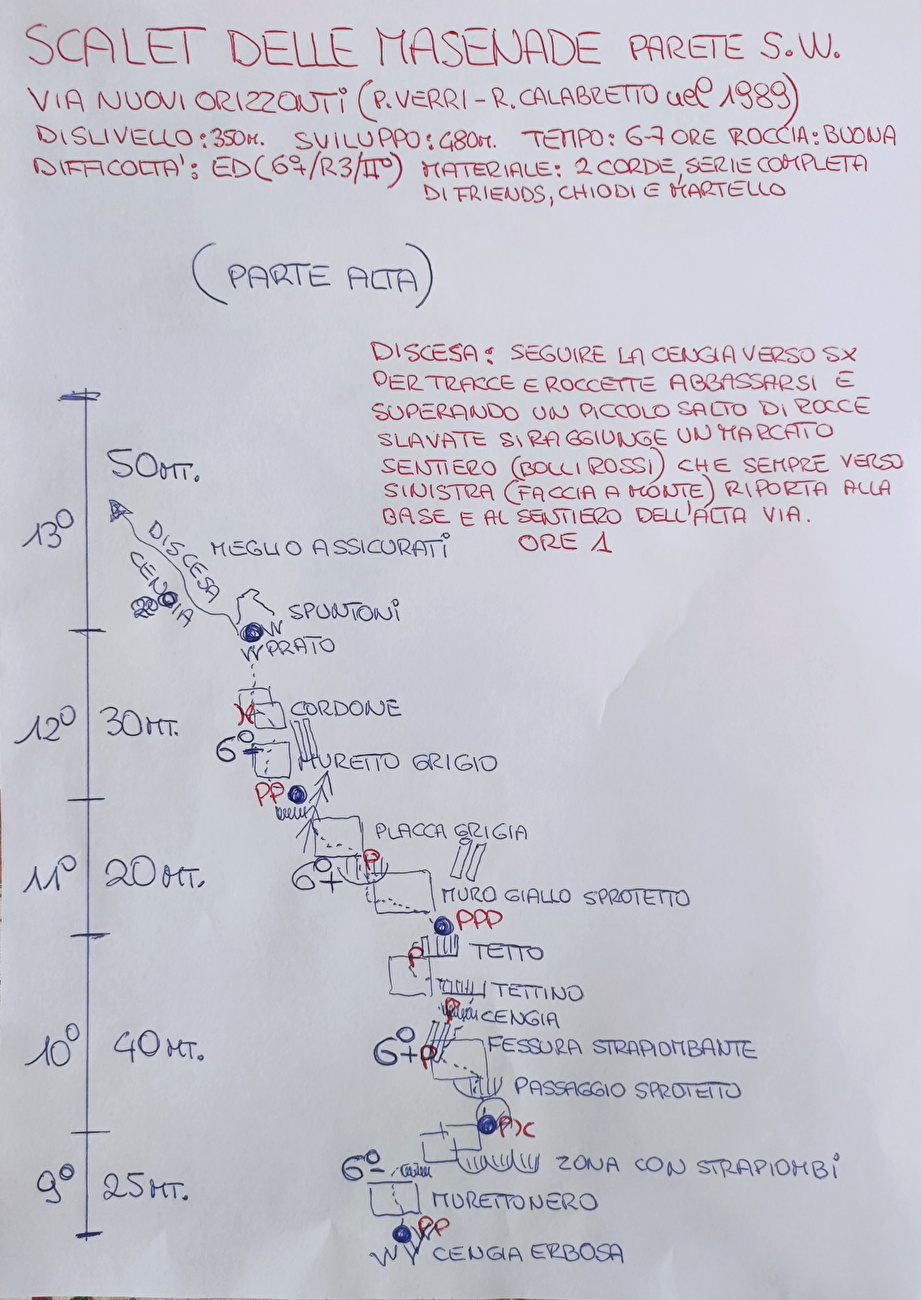 SCALET DELLE MASENADE PARETE S.W.
VIA NUOVI ORIZZONTI (P. VERRI - R. CALABRETTO nel 1989)
DISLIVELLO: 350M. SVILUPPO: 480M. TEMPO: 6-7 ORE ROCCIA: BUONA
DIFFICOLTA': ED (6°+/R3/II°) MATERIALE: 2 CORDE, SERIE COMPLETA
DI FRIENDS, CHIODI E MARTELLO
(PARTE ALTA)
DISCESA: SEGUIRE LA CENGIA VERSO SX
PER TRACCE E ROCCETTE ABBASSARSI E
SUPERANDO UN PICCOLO SALTO DI ROCCE
SLAVATE SI RAGGIUNGE UN MARCATO
SENTIERO (BOLLI ROSSI) CHE SEMPRE VERSO
SINISTRA (FACCIA A MONTE) RIPORTA ALLA
BASE E AL SENTIERO DELL'ALTA VIA.
ORE 1
50MT.
13°
DISCESA
MEGLIO ASSICURATI
CENGIA
2°
SPUNTONI
PRATO
12° 30MT.
CORDONE
6°+
MURETTO GRIGIO
PP
PLACCA GRIGIA
P
11° 20MT.
6°+
MURO GIALLO SPROTETTO
PPP
P
TETTO
TETTINO
P
CENGIA
10° 40MT.
6°+
P
FESSURA STRAPIOMBANTE
PASSAGGIO SPROTETTO
PX
6°-
ZONA CON STRAPIOMBI
9° 25MT.
MURETTO NERO
PP
CENGIA ERBOSA